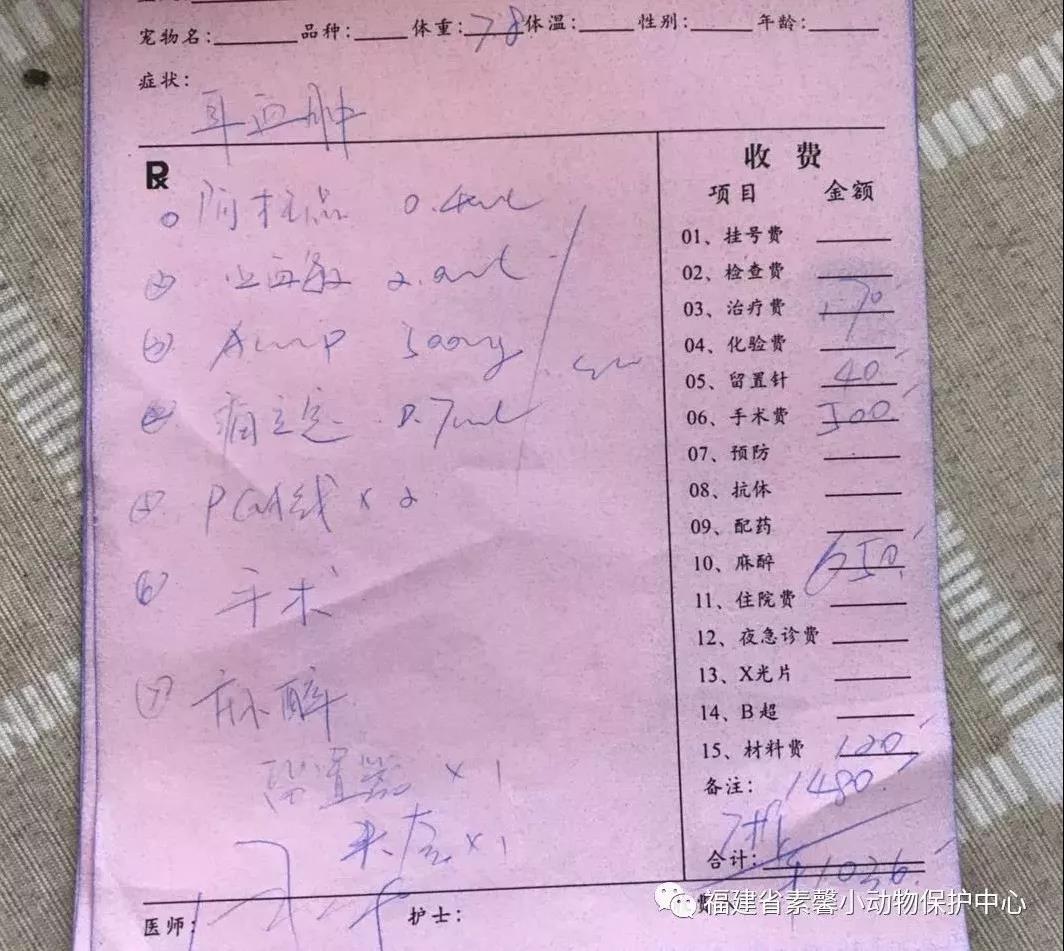 宠物名: 品种: 体重: 7.8 体温: 性别: 年龄:
症状:
耳血肿
Rx
① 阿托品 0.4ml
② 止血敏 2.0ml
③ Amp 500mg
④ 痛立定 0.7ml
⑤ PGA线 x 2
⑥ 手术
⑦ 麻醉
留置器 x 1
头套 x 1
医师: 护士:
收 费
项目 金额
01、挂号费
02、检查费
03、治疗费 170
04、化验费
05、留置针 40
06、手术费 500
07、预防
08、抗体
09、配药
10、麻醉 650
11、住院费
12、夜急诊费
13、X光片
14、B超
15、材料费 120
备注: 1480
7折
合计: ¥1036
福建省素馨小动物保护中心